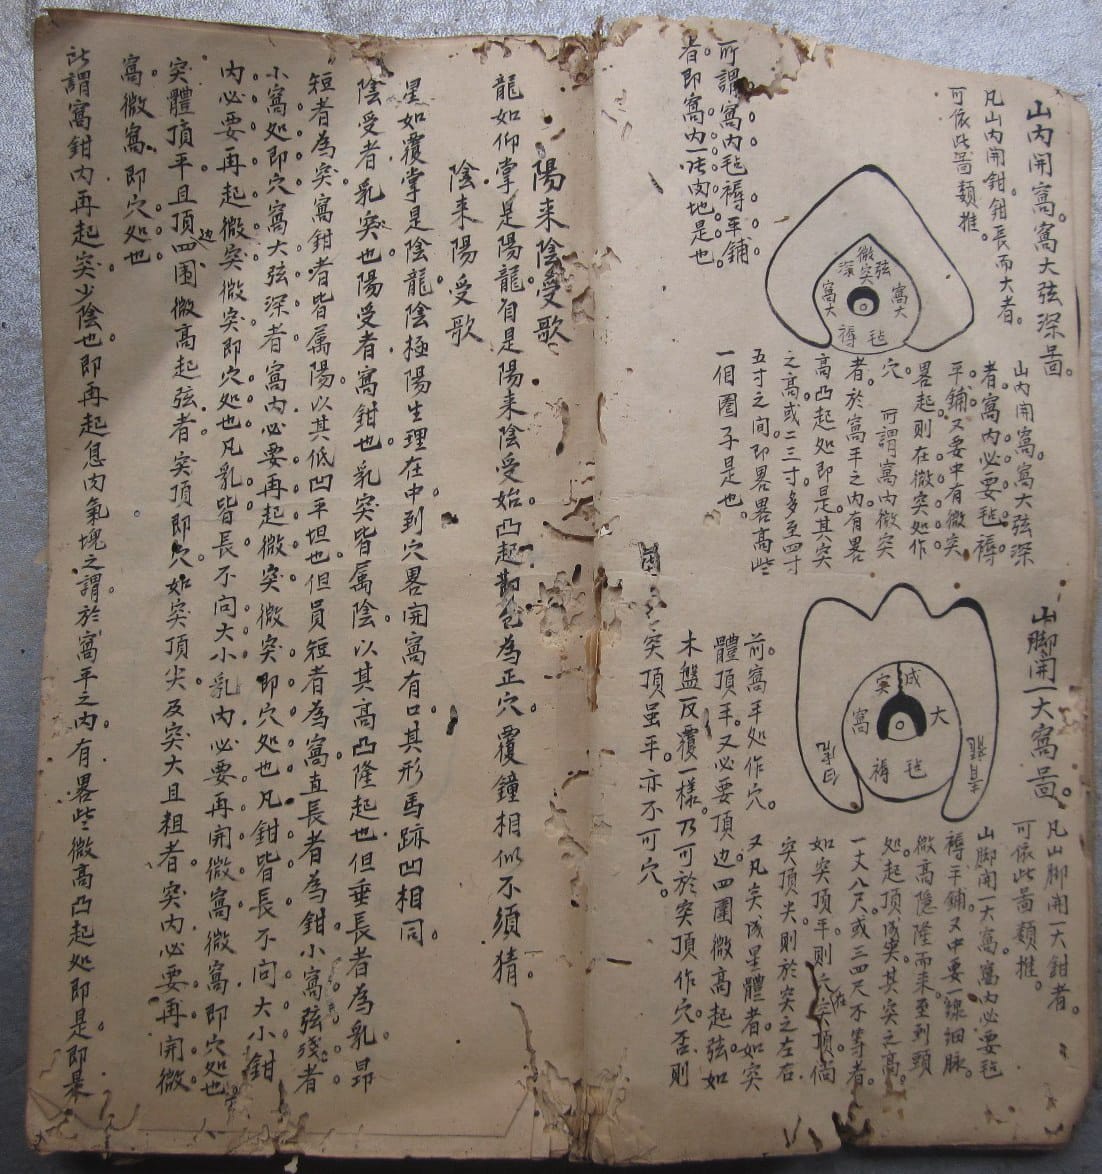 山內開窩窩大弦深畐。
凡山內開鉗鉗長而大者。
可依此畐類推。
微突
弦
深
窩大
窩大
毡
褥
山內開窩。窩大弦深
者。窩內必要毡褥
平鋪。又要中有微突
畧起。則在微突処作
穴。所謂窩內微突
者。於窩平之內。有畧
高凸起処。即是。其突
之高。或二三寸。多至四寸
五寸之間。即畧畧高些
一個圈子是也。
所謂窩內毡褥平鋪
者。即窩內一片肉地是也。
山脚開一大窩畐。
凡山脚開一大鉗者。
可依此畐類推。
成
突
大
窩
毡
褥
山脚開一大窩。窩內必要毡
褥平鋪。又中要一線細脉。
微高隱隆而来。至到頭
処。起頂成突。其突之高。
一丈八尺。或三四尺不等者。
如突頂平。則穴在突頂。倘
突頂尖。則於突之左右
前窩平処作穴。
又凡突成星體者。如突
體頂平。又必要頂边四圍微高起弦。如
木盤反覆一樣。乃可於突頂作穴。否則
突頂虽平。亦不可穴。
陽来陰受歌
龍如仰掌是陽龍。自是陽来陰受始。凸起為正穴。覆鐘相似不須猜。
陰来陽受歌
星如覆掌是陰龍。陰極陽生理在中。到穴畧開窩有口。其形馬跡凹相同。
陰受者。乳突也。陽受者。窩鉗也。乳突皆属陰。以其高凸隆起也。但垂長者為乳。昂
短者為突。窩鉗者皆属陽。以其低凹平坦也。但員短者為窩。直長者為鉗。小窩弦殘者
小窩処即穴。窩大弦深者。窩內必要再起微突。微突即穴処也。凡鉗皆長。不问大小鉗
內必要再起微突。微突即穴処也。凡乳皆長。不问大小乳內必要再開微窩。微窩即穴処也
突體頂平。且頂边四圍微高起弦者。突頂即穴。如突頂尖。及突大且粗者。突內必要再開微
窩。微窩即穴処也
所謂窩鉗內再起突。少陰也。即再起息肉氣塊之謂。於窩平之內。有畧些微高凸起処即是。即暴